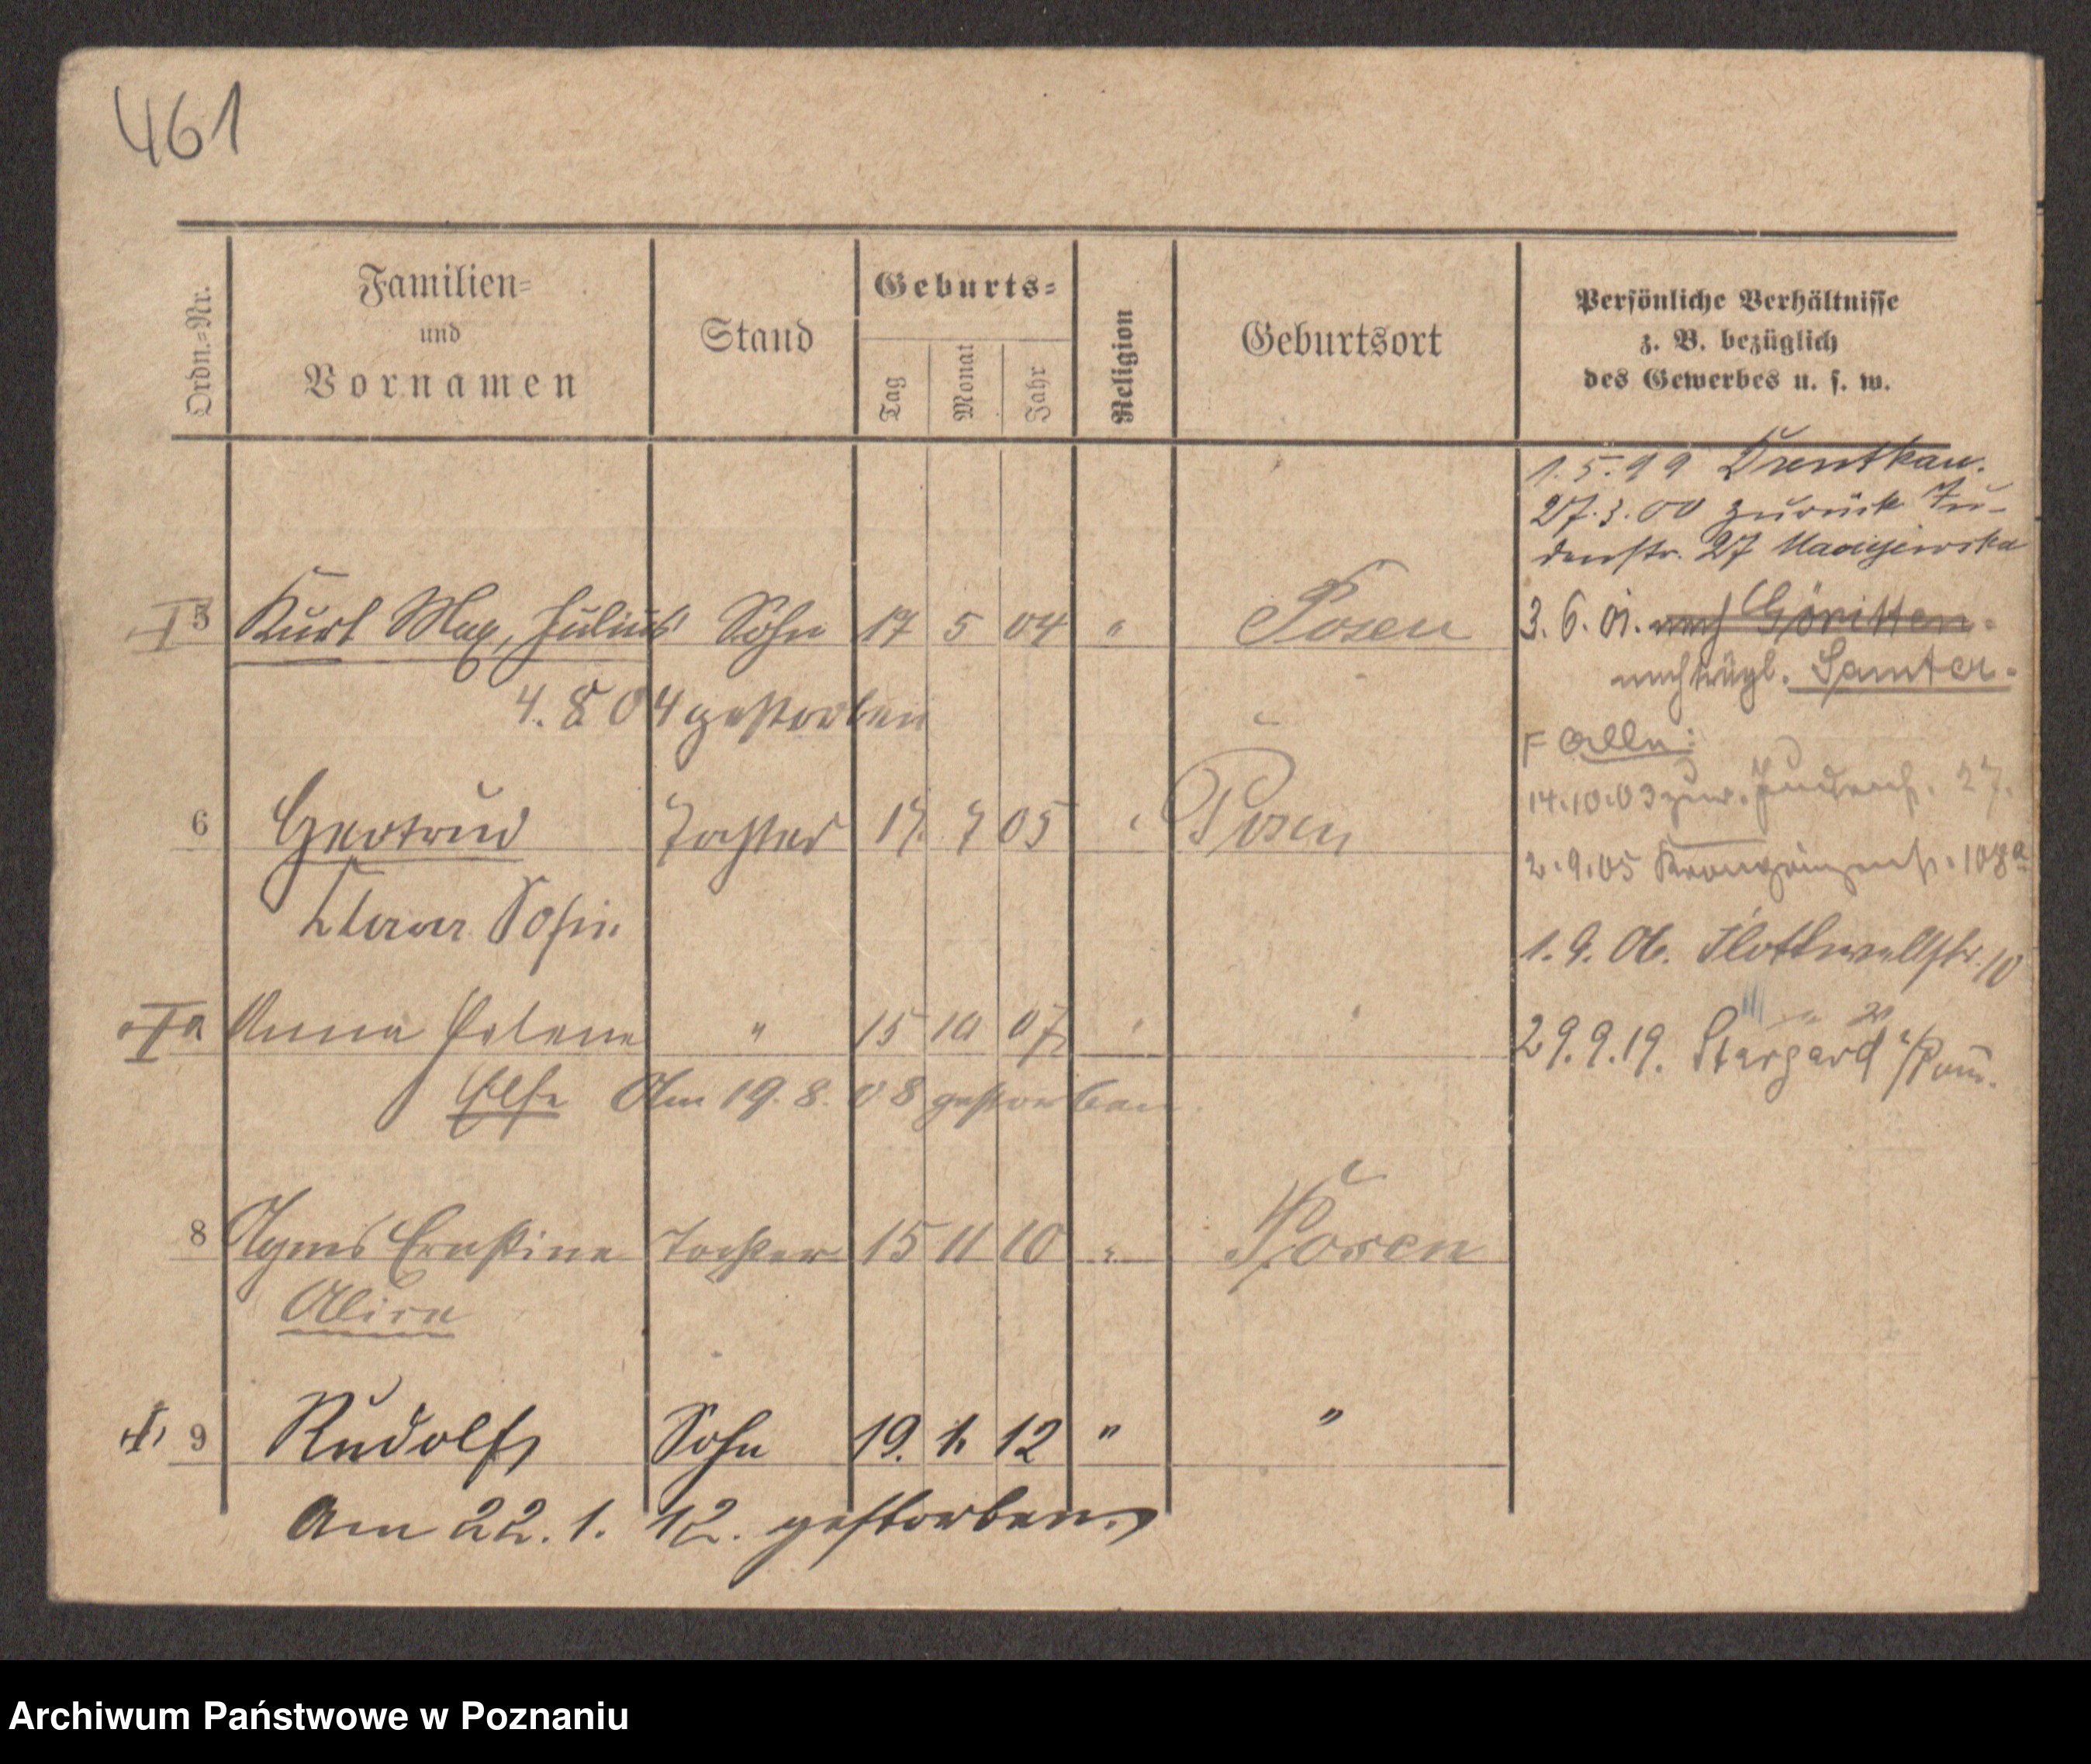 461
Ordn.-Nr.
Familien-
und
Vornamen
Stand
Geburts-
Tag
Monat
Jahr
Religion
Geburtsort
Persönliche Verhältnisse
z. B. bezüglich
des Gewerbes u. s. w.
1.5.99
27.3.00 zurück Ju-
denstr. 27
5 Kurt Max, Julius Sohn 17 5 04 " Posen
4.8 04 gestorben
3. 6. 01. nach Göritten.
nachträgl. Samter.
F Alle:
14.10.03 zur. Judenstr. 27.
6 Gertrud Tochter 17. 7 05 " Posen
Sofie
2.9.05 Kronprinzenstr. 108a
1. 9. 06. Flottwellstr. 10
Anna Helene " 15 10 07 " "
Else Am 19. 8. 08 gestorben
29.9.19. Stargard i/Pom.
8 Agnes Ernstine Tochter 15 11 10 " Posen
Alice
9 Rudolf Sohn 19. 1. 12 " "
Am 22. 1. 12. gestorben.
Archiwum Państwowe w Poznaniu